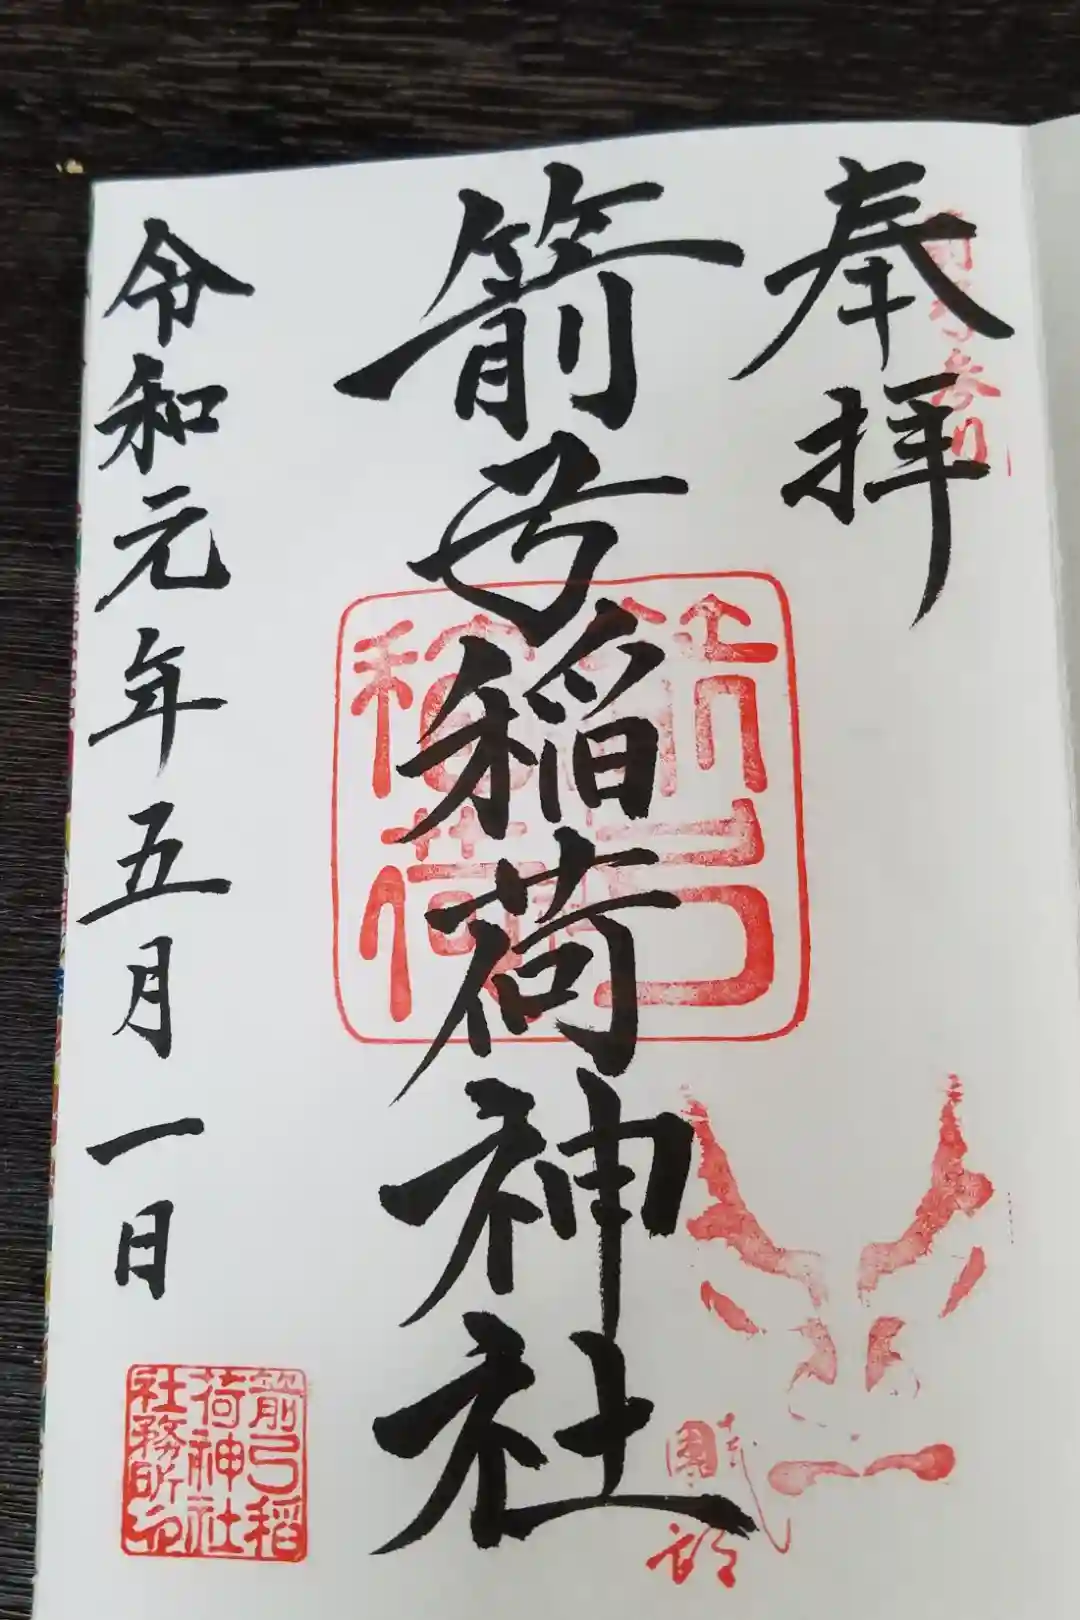 奉拝
箭弓稲荷神社
令和元年五月一日
箭弓稲荷
箭弓稲
荷神社
社務所印